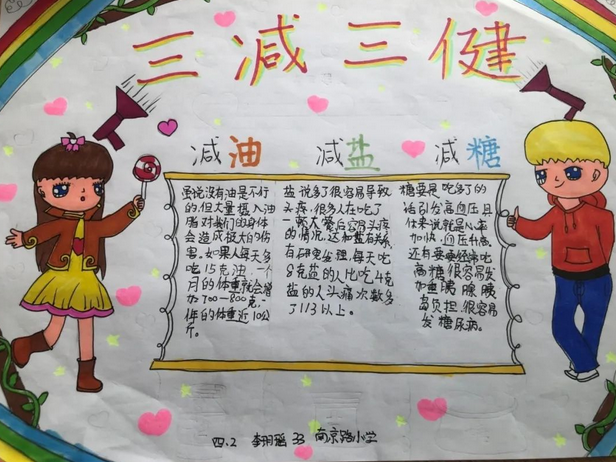 三减三健
减油
减盐
减糖
虽说没有油是不好
的,但大量摄入油
脂对我们的身体
会造成极大的伤
害。如果人每天多
吃15克油,一个
月的体重就会增
加700—800克,一
年的体重近10公
斤。
盐说多了很容易导致
头疼,很多人在吃了
一顿大餐后会有头疼
的情况,这和盐有关系,
有研究发现,每天吃
8克盐的人比吃4克
盐的人头痛次数多
了1/3以上。
糖要是吃多了的
话引发高血压,具
体来说就是心率
加快,血压升高,
还有要经常吃
高糖很容易发
加重胰腺胰
岛负担,很容易
发糖尿病。
四.2 李明瑶 33 南京路小学